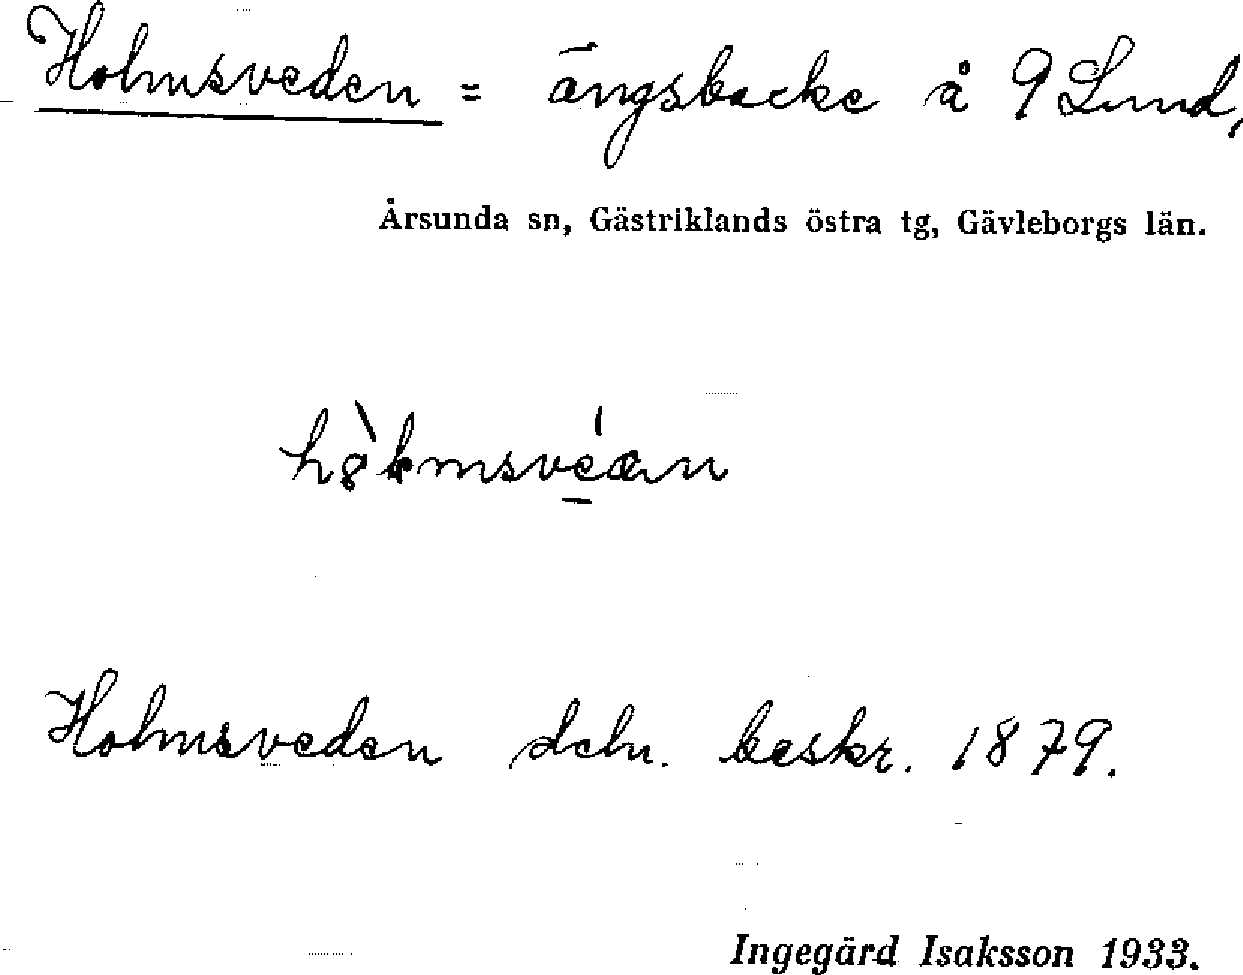 Holmsveden = ängsbacke å 9 Lund,
Årsunda sn, Gästriklands östra tg, Gävleborgs län.
Holmsveden deln. beskr. 1879.
Ingegärd Isaksson 1933.